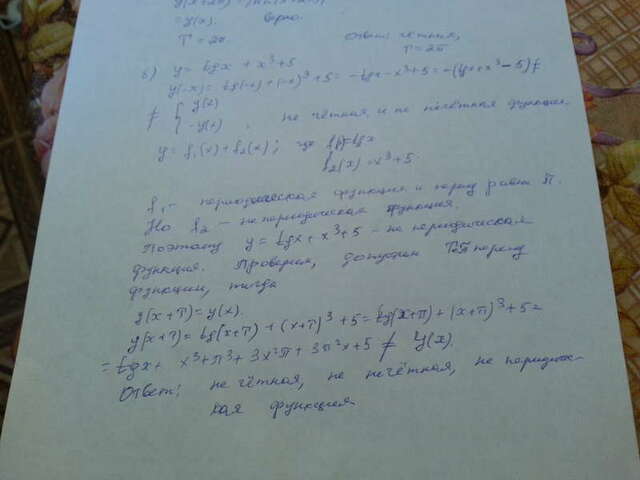 = y(x). верно.
T = 2π. Ответ: чётная,
T = 2π
в) y = tgx + x³ + 5
y(-x) = tg(-x) + (-x)³ + 5 = -tgx - x³ + 5 = -(tgx + x³ - 5) ≠
≠ { y(x)
-y(x) , не чётная и не нечётная функция.
y = f₁(x) + f₂(x); где f₁(x) = tgx
f₂(x) = x³ + 5.
f₁ - периодическая функция и период равен π.
Но f₂ - не периодическая функция.
Поэтому y = tgx + x³ + 5 - не периодическая
функция. Проверим, допустим T=π период
функции, тогда
y(x + T) = y(x).
y(x + T) = tg(x + T) + (x + T)³ + 5 = tg(x + π) + (x + π)³ + 5 =
= tgx + x³ + π³ + 3x²π + 3π²x + 5 ≠ y(x).
Ответ: не чётная, не нечётная, не периодичес-
кая функция.